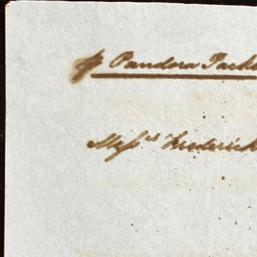 ⅌ Pandora Packe
Messrs Frederick